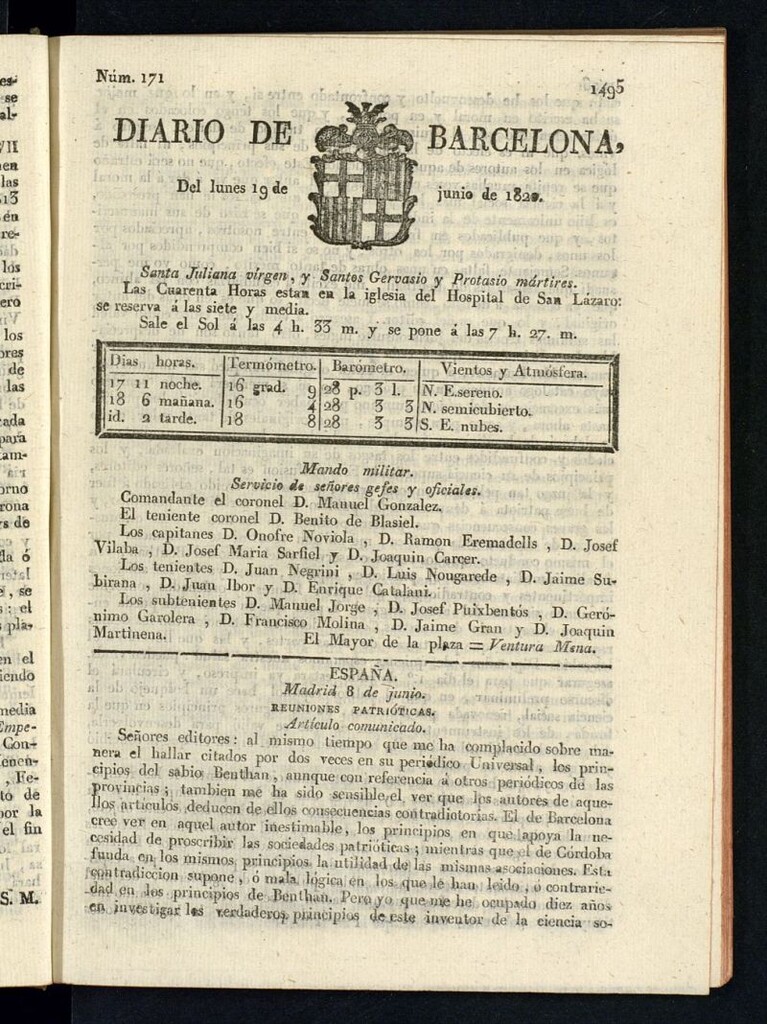 Núm. 171
1495
DIARIO DE BARCELONA,
Del lunes 19 de junio de 1820.
Santa Juliana vírgen, y Santos Gervasio y Protasio mártires.
Las Cuarenta Horas estan en la iglesia del Hospital de San Lázaro:
se reserva á las siete y media.
Sale el Sol á las 4 h. 33 m. y se pone á las 7 h. 27. m.
Dias horas. Termómetro. Barómetro. Vientos y Atmósfera.
17 11 noche. 16 grad. 9 28 p. 3 l. N. E. sereno.
18 6 mañana. 16 4 28 3 3 N. semicubierto.
id. 2 tarde. 18 8 28 3 3 S. E. nubes.
Mando militar.
Servicio de señores gefes y oficiales.
Comandante el coronel D. Manuel Gonzalez.
El teniente coronel D. Benito de Blasiel.
Los capitanes D. Onofre Noviola, D. Ramon Eremadells, D. Josef
Vilaba, D. Josef Maria Sarfiel y D. Joaquin Carcer.
Los tenientes D. Juan Negrini, D. Luis Nougarede, D. Jaime Su-
birana, D. Juan Ibor y D. Enrique Catalani.
Los subtenientes D. Manuel Jorge, D. Josef Puixbentós, D. Geró-
nimo Garolera, D. Francisco Molina, D. Jaime Gran y D. Joaquin
Martinena. El Mayor de la plaza = Ventura Mena.
ESPAÑA.
Madrid 8 de junio.
REUNIONES PATRIÓTICAS.
Artículo comunicado.
Señores editores: al mismo tiempo que me ha complacido sobre ma-
nera el hallar citados por dos veces en su periódico Universal, los prin-
cipios del sabio Benthan, aunque con referencia á otros periódicos de las
provincias; tambien me ha sido sensible el ver que los autores de aque-
llos artículos deducen de ellos consecuencias contradictorias. El de Barcelona
cree ver en aquel autor inestimable, los principios en que apoya la ne-
cesidad de proscribir las sociedades patrióticas; mientras que el de Córdoba
funda en los mismos principios la utilidad de las mismas asociaciones. Esta
contradiccion supone, ó mala lógica en los que le han leido, ó contrarie-
dad en los principios de Benthan. Pero yo que me he ocupado diez años
en investigar los verdaderos principios de este inventor de la ciencia so-
S. M.